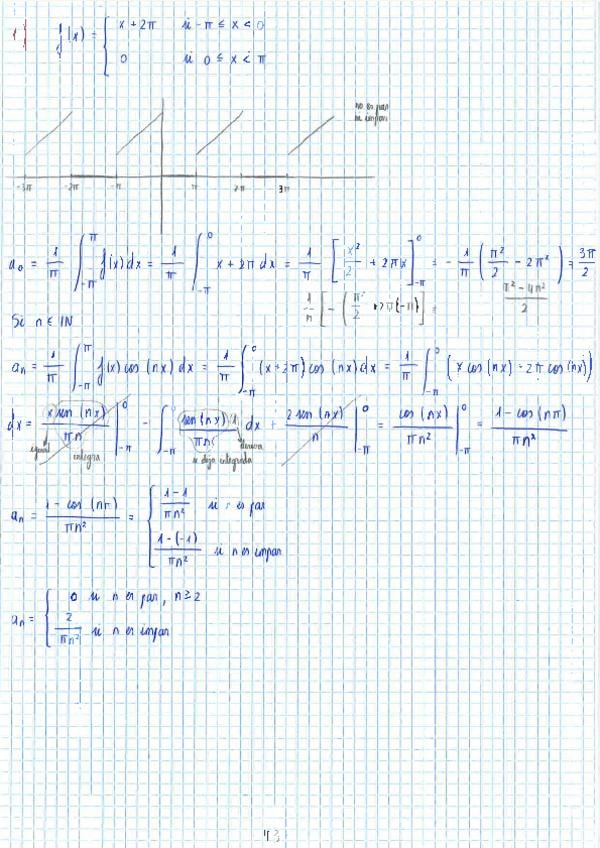 1)
f(x) = { x + 2π si -π ≤ x < 0
0 si 0 ≤ x < π
no es par
ni impar
-3π -2π -π π 2π 3π
a₀ = 1/π ∫_{-π}^{π} f(x) dx = 1/π ∫_{-π}^{0} x + 2π dx = 1/π [x²/2 + 2πx]_{-π}^{0} = - 1/π (π²/2 - 2π²) = 3π/2
Si n ∈ IN
aₙ = 1/π ∫_{-π}^{π} f(x) cos (nx) dx = 1/π ∫_{-π}^{0} (x + 2π) cos (nx) dx = 1/π ∫_{-π}^{0} (x cos (nx) + 2π cos (nx))
dx = x sen (nx)/πn |_{-π}^{0} - ∫_{-π}^{0} sen (nx)/πn · 1 dx + 2 sen (nx)/n |_{-π}^{0} = cos (nx)/πn² |_{-π}^{0} = 1 - cos (nπ)/πn²
igual integra se deja integrada deriva
aₙ = 1 - cos (nπ)/πn² = { 1 - 1/πn² si n es par
1 - (-1)/πn² si n es impar
aₙ = { 0 si n es par, n ≥ 2
2/πn² si n es impar